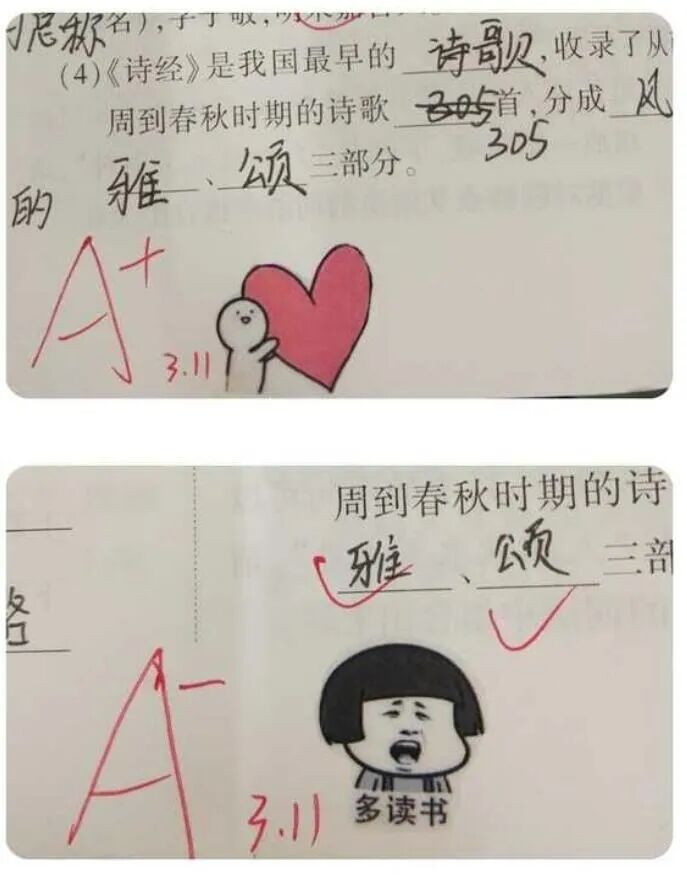 称名),字子敬,
(4)《诗经》是我国最早的 诗歌 ,收录了从
周到春秋时期的诗歌 305 首,分成 风
305
的 雅 、 颂 三部分。
A+
3.11
周到春秋时期的诗
雅 、 颂 三部
A-
3.11
多读书